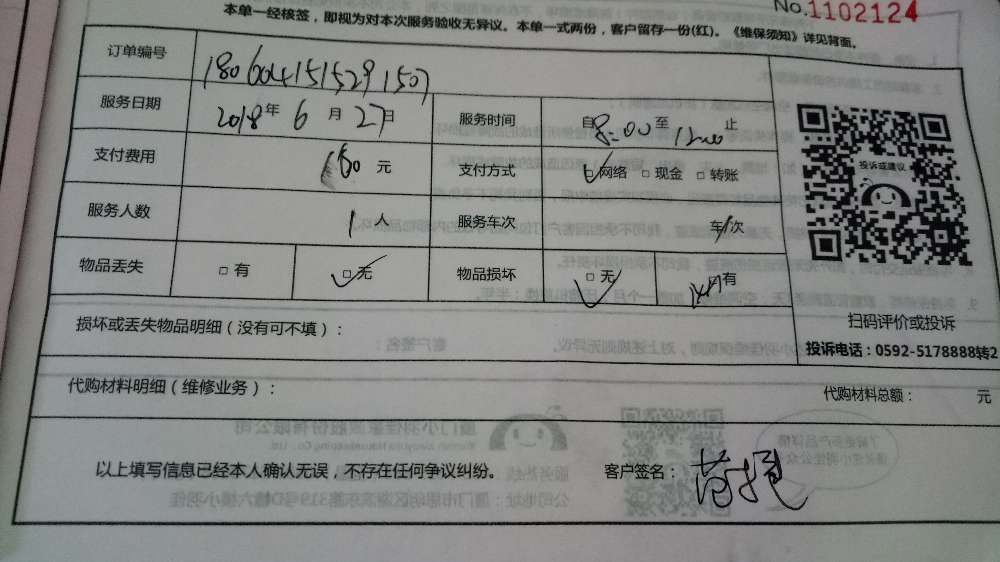 No.1102124
本单一经核签，即视为对本次服务验收无异议。本单一式两份，客户留存一份(红)。《维保须知》详见背面。
订单编号 1806041515291507
服务日期 2018年 6 月 27日 服务时间 自8:00至12:00止
支付费用 160 元 支付方式 网络 □ 现金 □ 转账
投诉或建议
服务人数 1 人 服务车次 车/次
物品丢失 □ 有 □ 无 物品损坏 □ 无 □ 有
扫码评价或投诉
损坏或丢失物品明细（没有可不填）：
投诉电话：0592-5178888转2
代购材料明细（维修业务）： 代购材料总额： 元
以上填写信息已经本人确认无误，不存在任何争议纠纷。 客户签名：